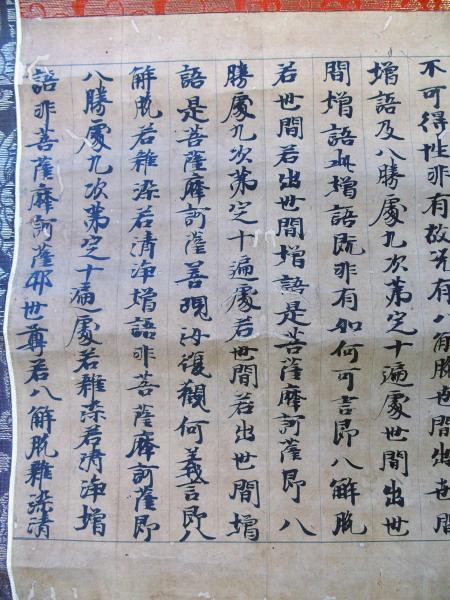 不可得性非有故况有八解脫世間出世間
增語及八勝處九次第定十遍處世間出世
間增語此增語既非有如何可言即八解脫
若世間若出世間增語是菩薩摩訶薩即八
勝處九次第定十遍處若世間若出世間增
語是菩薩摩訶薩善現汝復觀何義言即八
解脫若雜染若清淨增語非菩薩摩訶薩即
八勝處九次第定十遍處若雜染若清淨增
語非菩薩摩訶薩耶世尊若八解脫雜染清